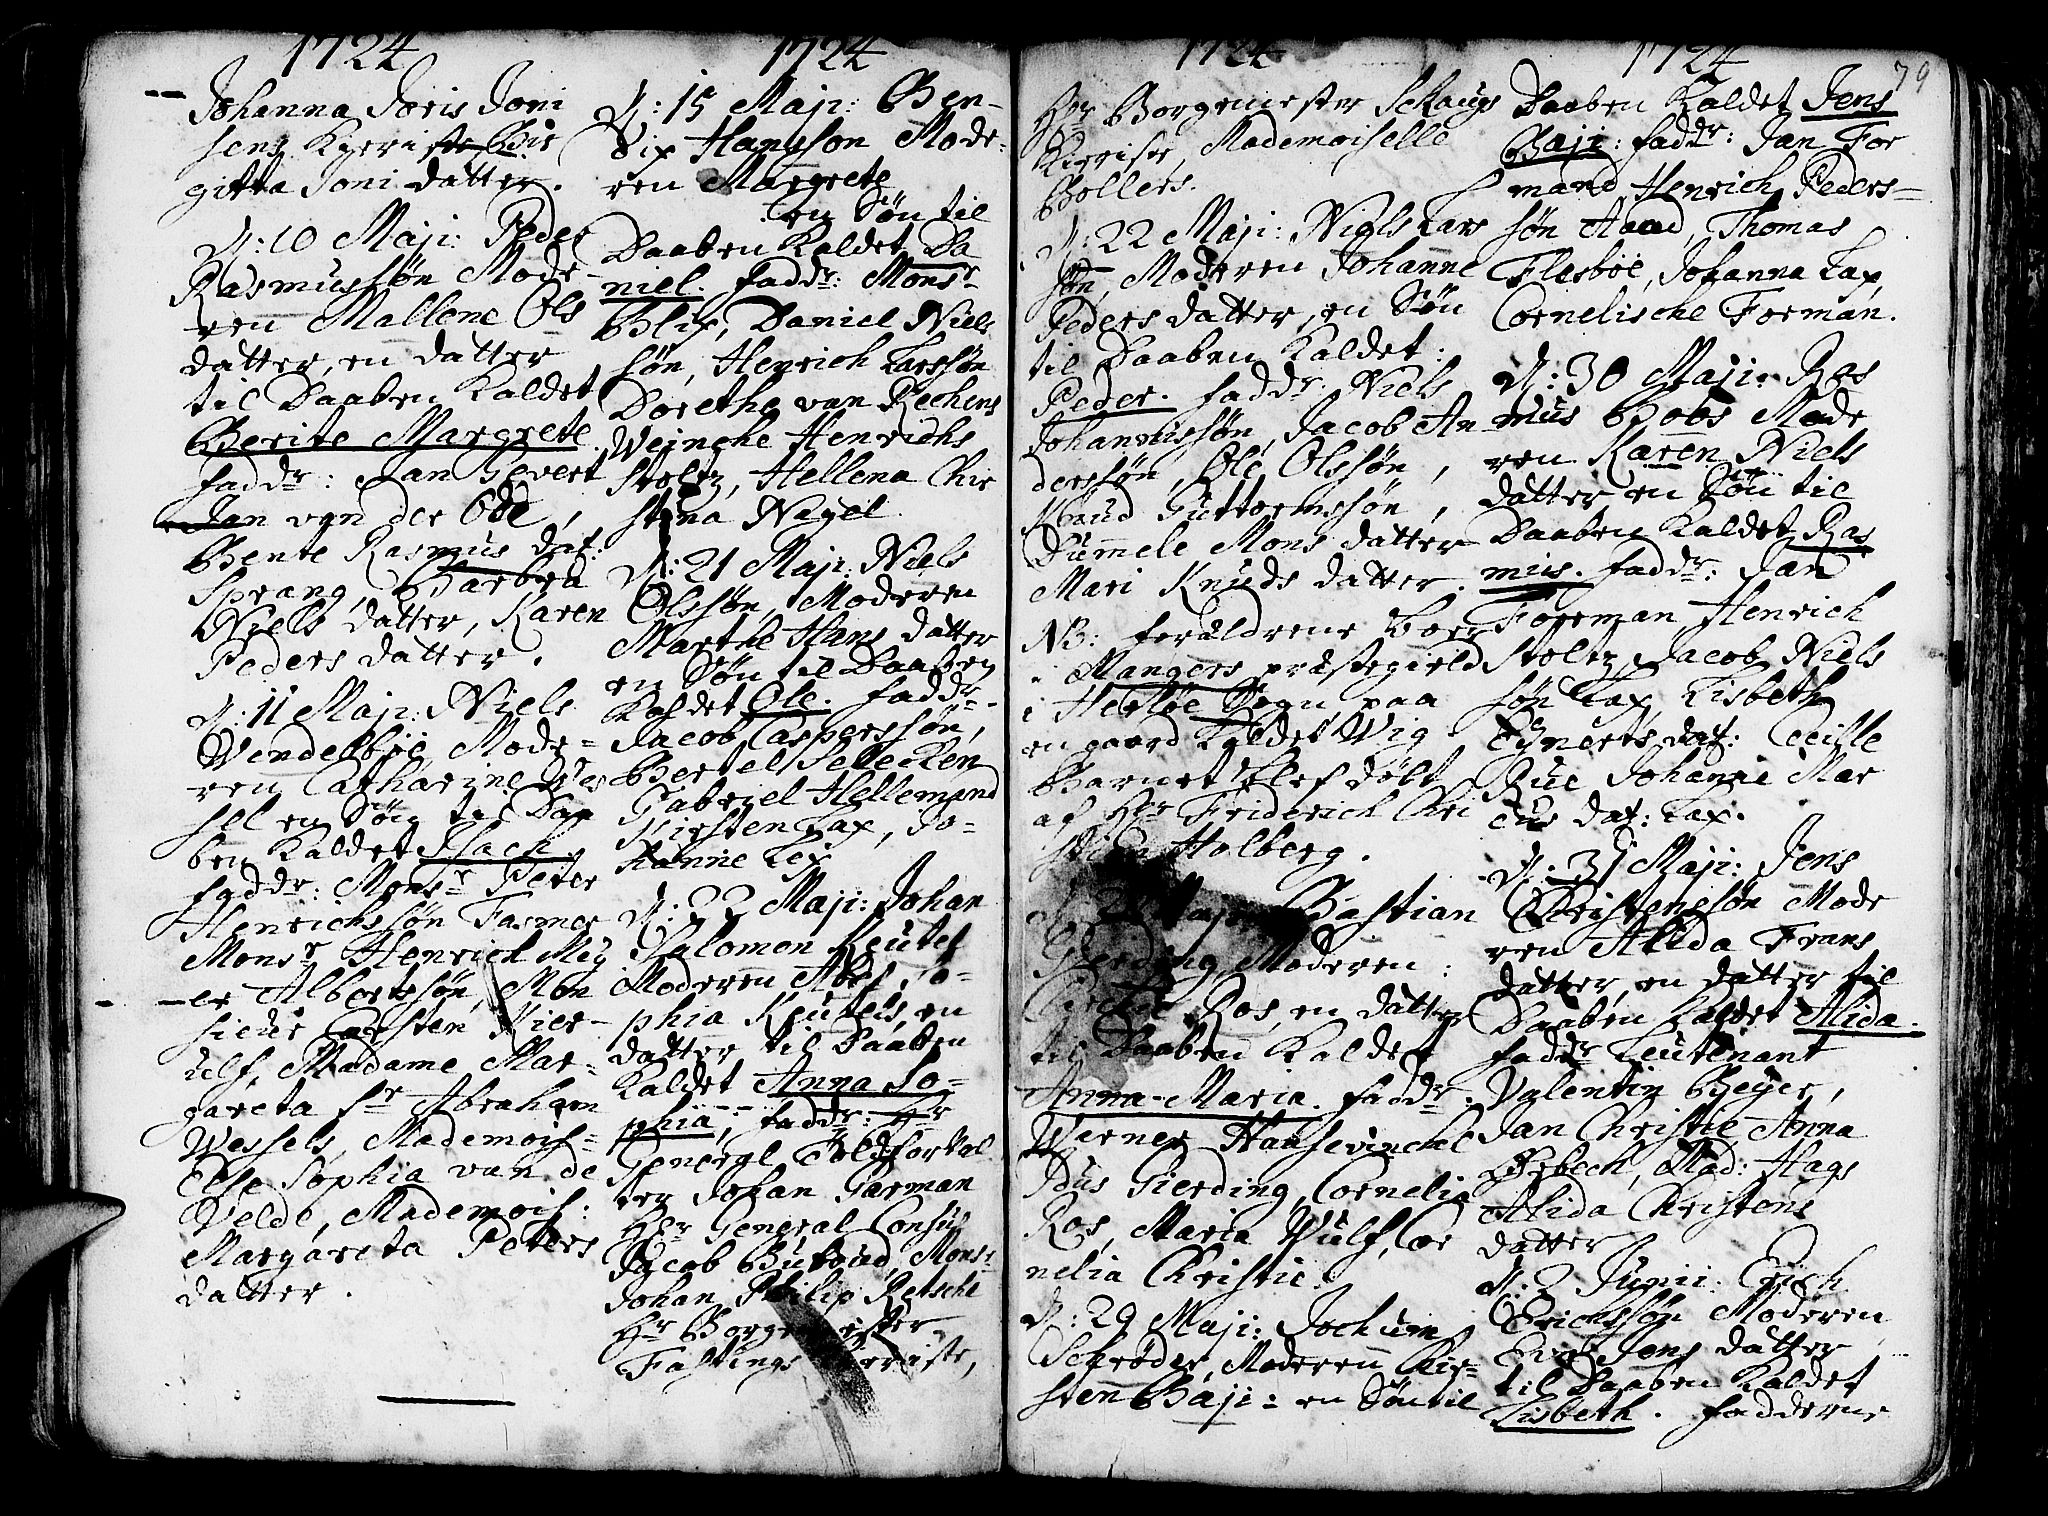 1724
Johanna Joris Joni
sens Kieriste, Bir
gitta Joni datter.
d: 10 Maji: Peder
Rasmussøn Mode-
ren Mallene Ols
datter, en datter
til Daaben kaldet
Berite Margrete
faddr: Jan Gevert
Jan van der Ode,
Bente Rasmus dat:
Sprang, Barbra
Niels datter, Karen
Peders datter.
d: 11 Maji: Niels
Wendelboe, Mode-
ren Catharine Wes
sel en Søn til Daa
ben kaldet Isach.
faddr: Monsr Peter
Henrichssøn Fasmer
Monsr Henrich Mey
er Albertssøn, Mon
sieur Carsten Wier-
ulf, Madame Mar-
gareta sr Abraham
Wessels, Mademois-
Else Sophia van de
Velde, Mademois:
Margareta Peters
datter.
1724
d: 15 Maji: Ben-
dix Hansson Mode-
ren Margrete
en Søn til
Daaben kaldet Da
niel. faddr: Monsr
Blix, Daniel Niels
søn, Henrich Larssøn
Dorethe van Rechens
Wejnche Henrichs
Stoltz, Hellena Chri
stina Negel.
d: 21 Maji: Niels
Olssøn, Moderen
Marthe Hans datter
en Søn til Daaben
kaldet Ole. faddr.
Jacob Casperssøn,
Bertel Sellecken
Gabriel Hellemand
Kirsten Lax, Jo-
hanne Lex
d: 22 Maji: Johan
Salomon Keutel
Moderen Abel So-
phia Keutels, en
datter til Daaben
kaldet Anna So-
phia, faddr: Hr
General Toldforval
ter Johan Garman
Hr General Consul
Jacob Butoud, Monsr
Johan Philip Retsche
Hr Borgemester
Fastings Kieriste,
1724
Hr Borgemester Schaugs
Kieriste, Mademoiselle
Bollers.
d: 22 Maji: Niels Lars
søn, Moderen Johanne
Peders datter, en Søn
til Daaben kaldet:
Peder. faddr. Niels
Johannissøn, Jacob An
derssøn, Ole Olssøn,
Guttormssøn,
Dummele Mons datter
Mari Knuds datter.
NB: forældrene boer
i Mangers præstegield
i Herløe Sogn paa
en gaard kaldet Wig
Barnet blef døbt
af Hr Friderich Chri
stian Holberg.
Maji: Bastian
Gierding Moderen:
Ros, en datter
til Daaben kaldet
Anna-Maria. faddr:
Werner Hansevinckel
Idus Gierding, Cornelia
Ros, Maria Wulf, Cor
nelia Christie.
d: 29 Maji: Jochum
Schrøder, Moderen Kir-
sten Baji: en Søn til
1724
79
Daaben kaldet Jens
Baji: faddr: Jan For
mand Henrich Peders-
søn Aaed, Thomas
Flesboe, Johanna Lax,
Cornelische Forman.
d: 30 Maji: Ras
mus Bobs Mode
ren Karen Niels
datter en Søn til
Daaben kaldet Ras
mus. faddr: Jan
Forman, Henrich
Stoltz, Jacob Niels
søn Lax, Lisbeth
Eynerts dat: Cecille
Rue Johanne Mar
cus dat: Lax.
d: 31 Maji: Jens
Christenssøn Mode
ren Alida Frans
datter, en datter til
Daaben kaldet Alida.
faddr Leutenant
Valentin Beyer,
Jan Christie, Anna
Ørbech, Mad: Hags
Alida Christens
datter
d: 2 Junii: Erich
Erichssøn Moderen
Jens datter
til Daaben kaldet
Lisbeth. fadderne